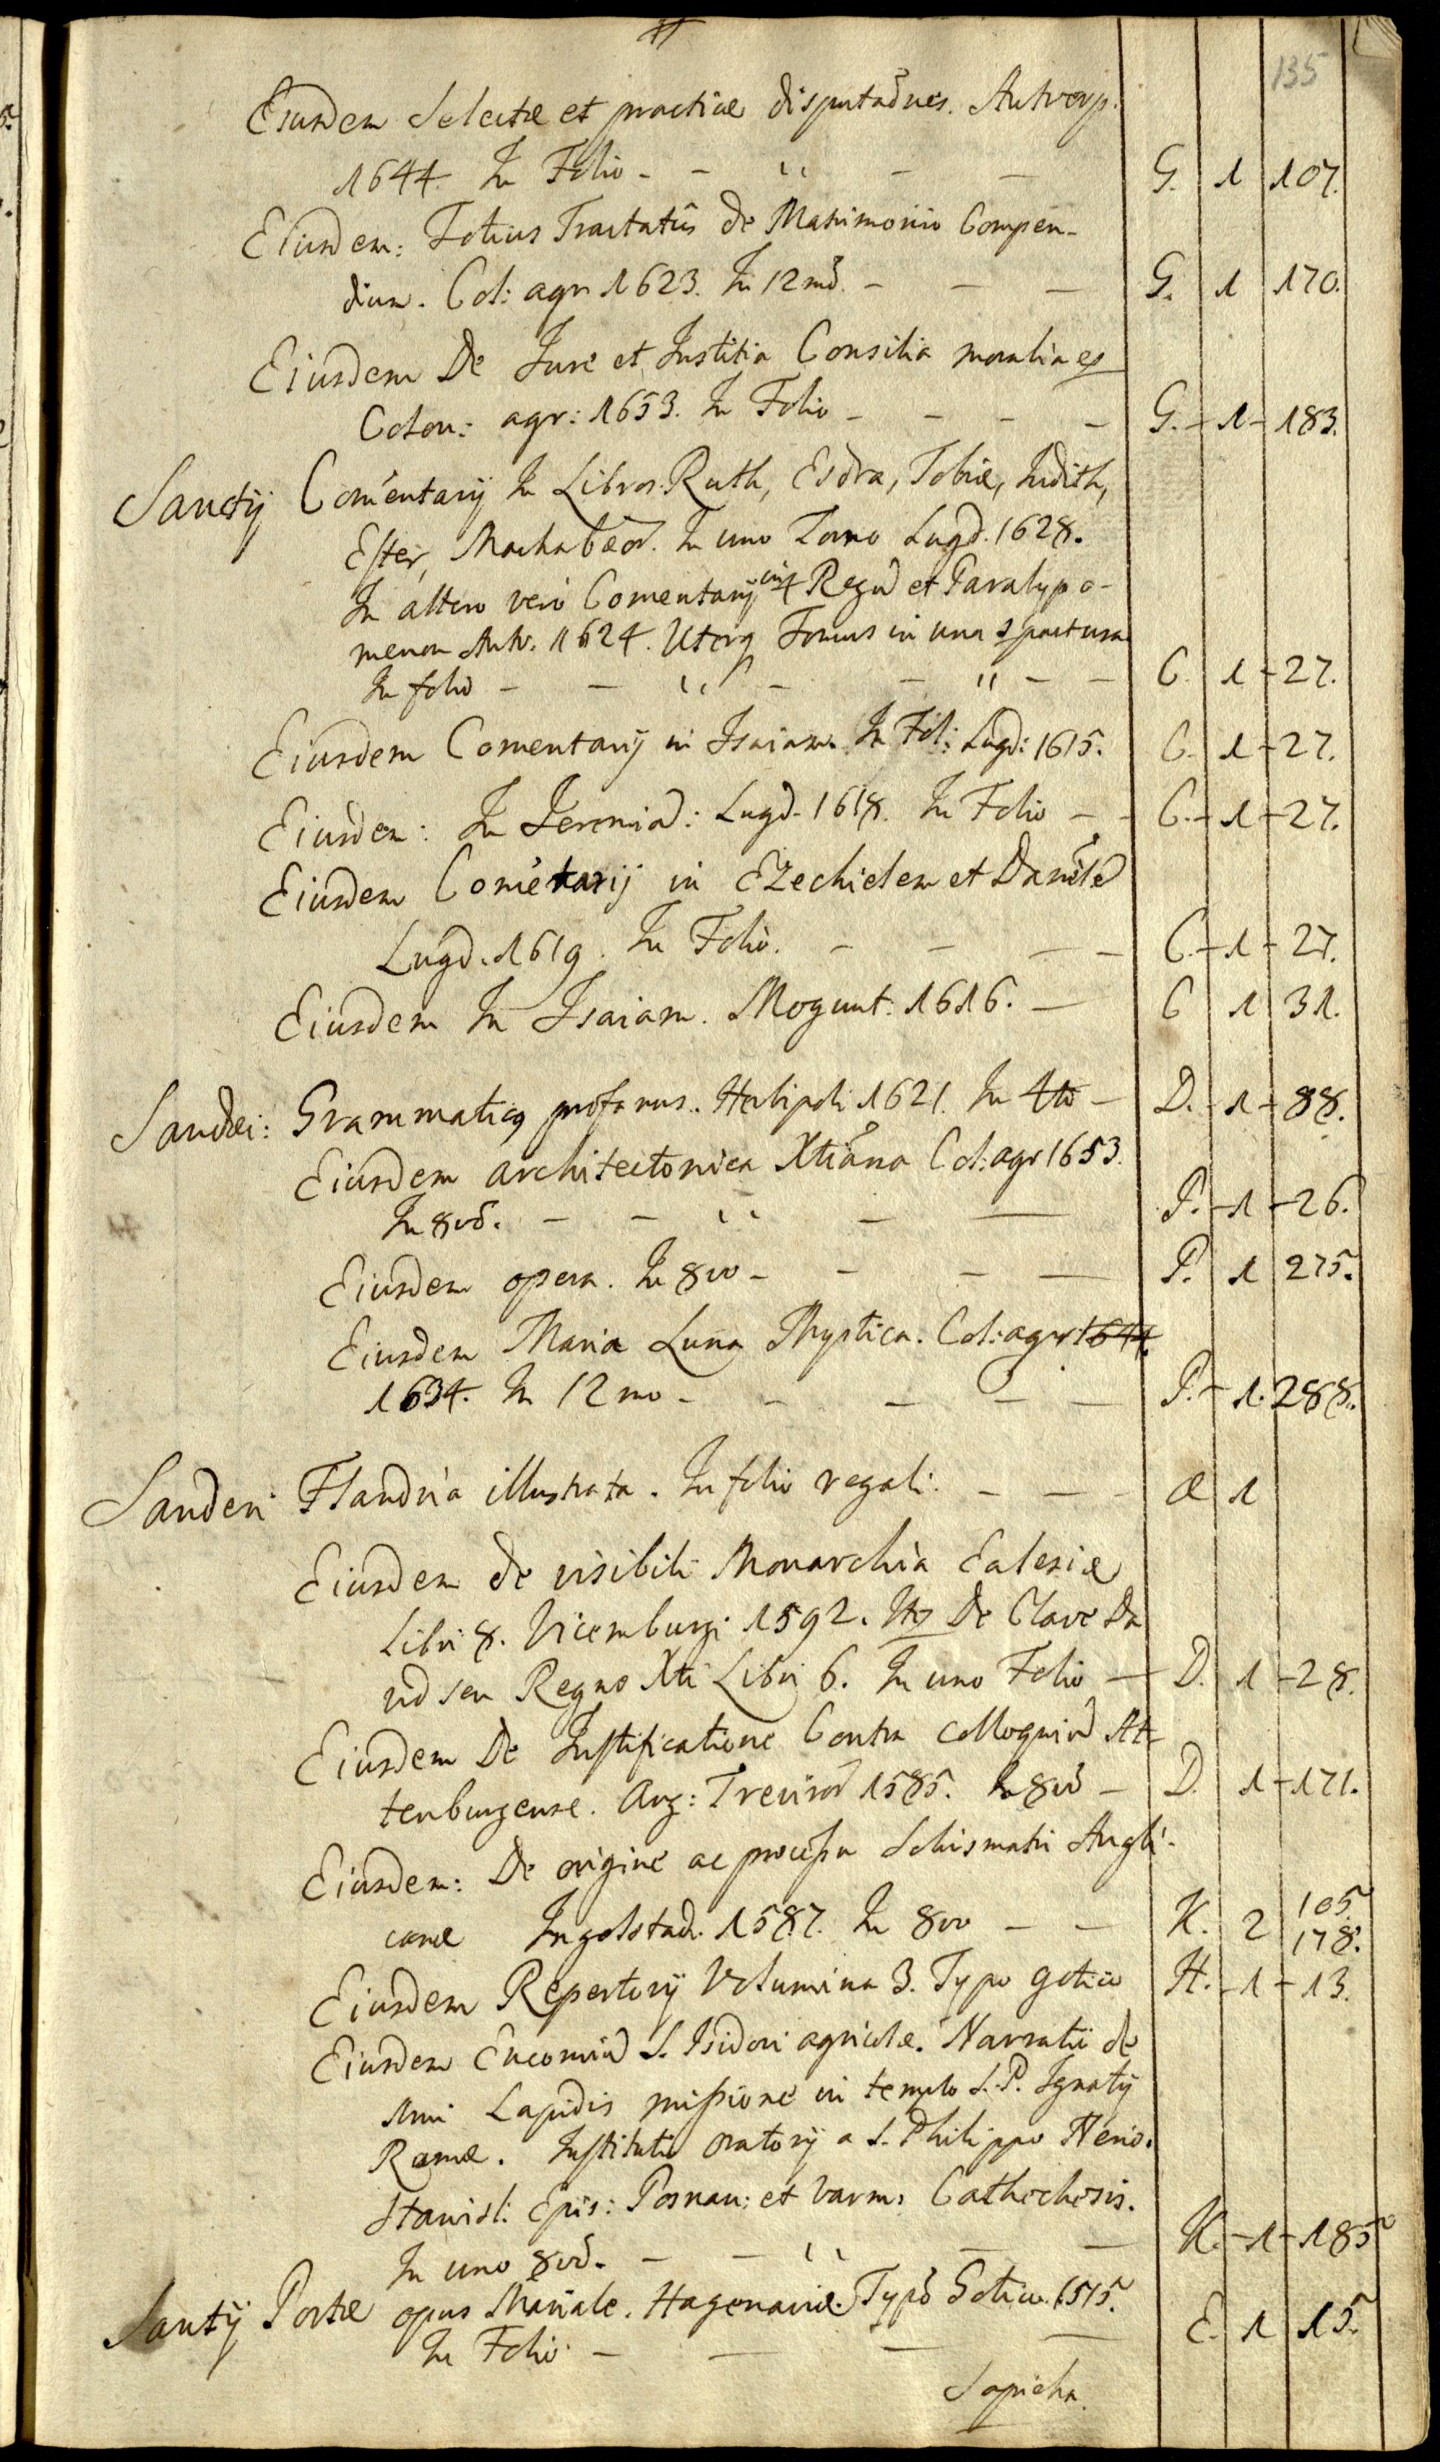 135
Eiusdem Selectæ et practicæ disputaões. Antverp.
1644. In Folio - - " - - G. 1 107.
Eiusdem: Totius Tractatûs de Matrimonio Compen-
dium. Col: agr 1623. In 12mõ. - - - G. 1 170.
Eiusdem De Jure et Justitia Consilia moralia
Colon: agr: 1653. In Folio - - - - G. - 1 - 183.
Sanctij Comentarij In Libros Ruth, Esdræ, Tobiæ, Judith,
Ester, Machabæor. In uno Tomo Lugd. 1628.
In altero verò Comentarij in 4 Regũ et Paralypo-
menon Antv. 1624. Uterq Tomus in una
In folio - - " - - " - - C. 1 - 27.
Eiusdem Comentarij in Isaiam. In Fol: Lugd: 1615. C. 1 - 27.
Eiusdem: In Jeremiã: Lugd. 1618. In Folio - - C. - 1 - 27.
Eiusdem Comẽtarij in Ezechielem et Danielẽ
Lugd. 1619. In Folio. - - - - C. - 1 - 27.
Eiusdem In Isaiam. Mogunt: 1616. - C 1 31.
Sandæi: Grammaticq profanus. Herbipoli 1621. In 4to - D. - 1 - 88.
Eiusdem architectonica Xtiãna Col: agr 1653.
In 8võ. - - " - - P. - 1 - 26.
Eiusdem opera. In 8vo - - - - P. 1 275.
Eiusdem Maria Luna Mystica. Col: agr 1644.
1634. In 12mo - - - - - P. - 1. 288.
Sanderi Flandria illustrata. In folio regali. - - - Æ 1
Eiusdem de visibili Monarchia Ecclesiæ
Libri 8. Vicemburgi 1592. Itq De Clave Da
vid seu Regno Xti Libri 6. In uno Folio - D. 1 - 28.
Eiusdem De Justificatione Contra colloquiũ Al-
tenburgense. Aug: Trevirorũ 1585. In 8vo - D. 1 - 171.
Eiusdem: De origine ac processu Schismatis Angli-
canæ Ingolstad. 1587. In 8vo - - K. 2 105. 178.
Eiusdem Repertorij Volumina 3. Typo gotico H. - 1 - 13.
Eiusdem Encomiũ S. Isidori agricolæ. Narratio de
Lapidis missione in templo S. P. Ignatij
Romæ. Institutio oratorij a S. Philippo Nerio.
Stanisl: Epis: Posnan: et Varm: Cathechesis.
In uno 8võ. - - " - - K. - 1 - 185
Santij Portæ opus Mariale. Hagenaviæ. Typõ Gotico. 1515.
In Folio - - - - E. 1 15.
Sapieha.